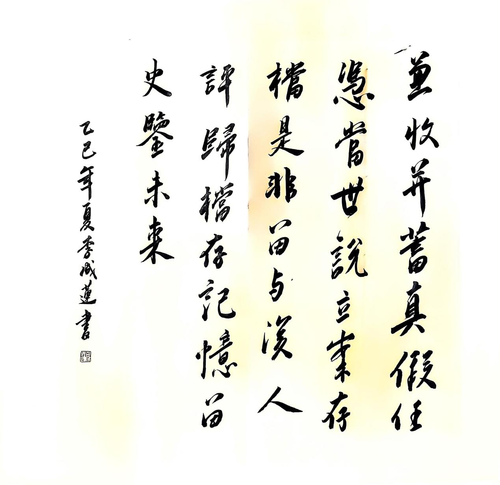 兼收并蓄真假任
憑當世說立案存
檔是非留与後人
評歸檔存記憶留
史鑒未來
乙巳年夏李成蓮書